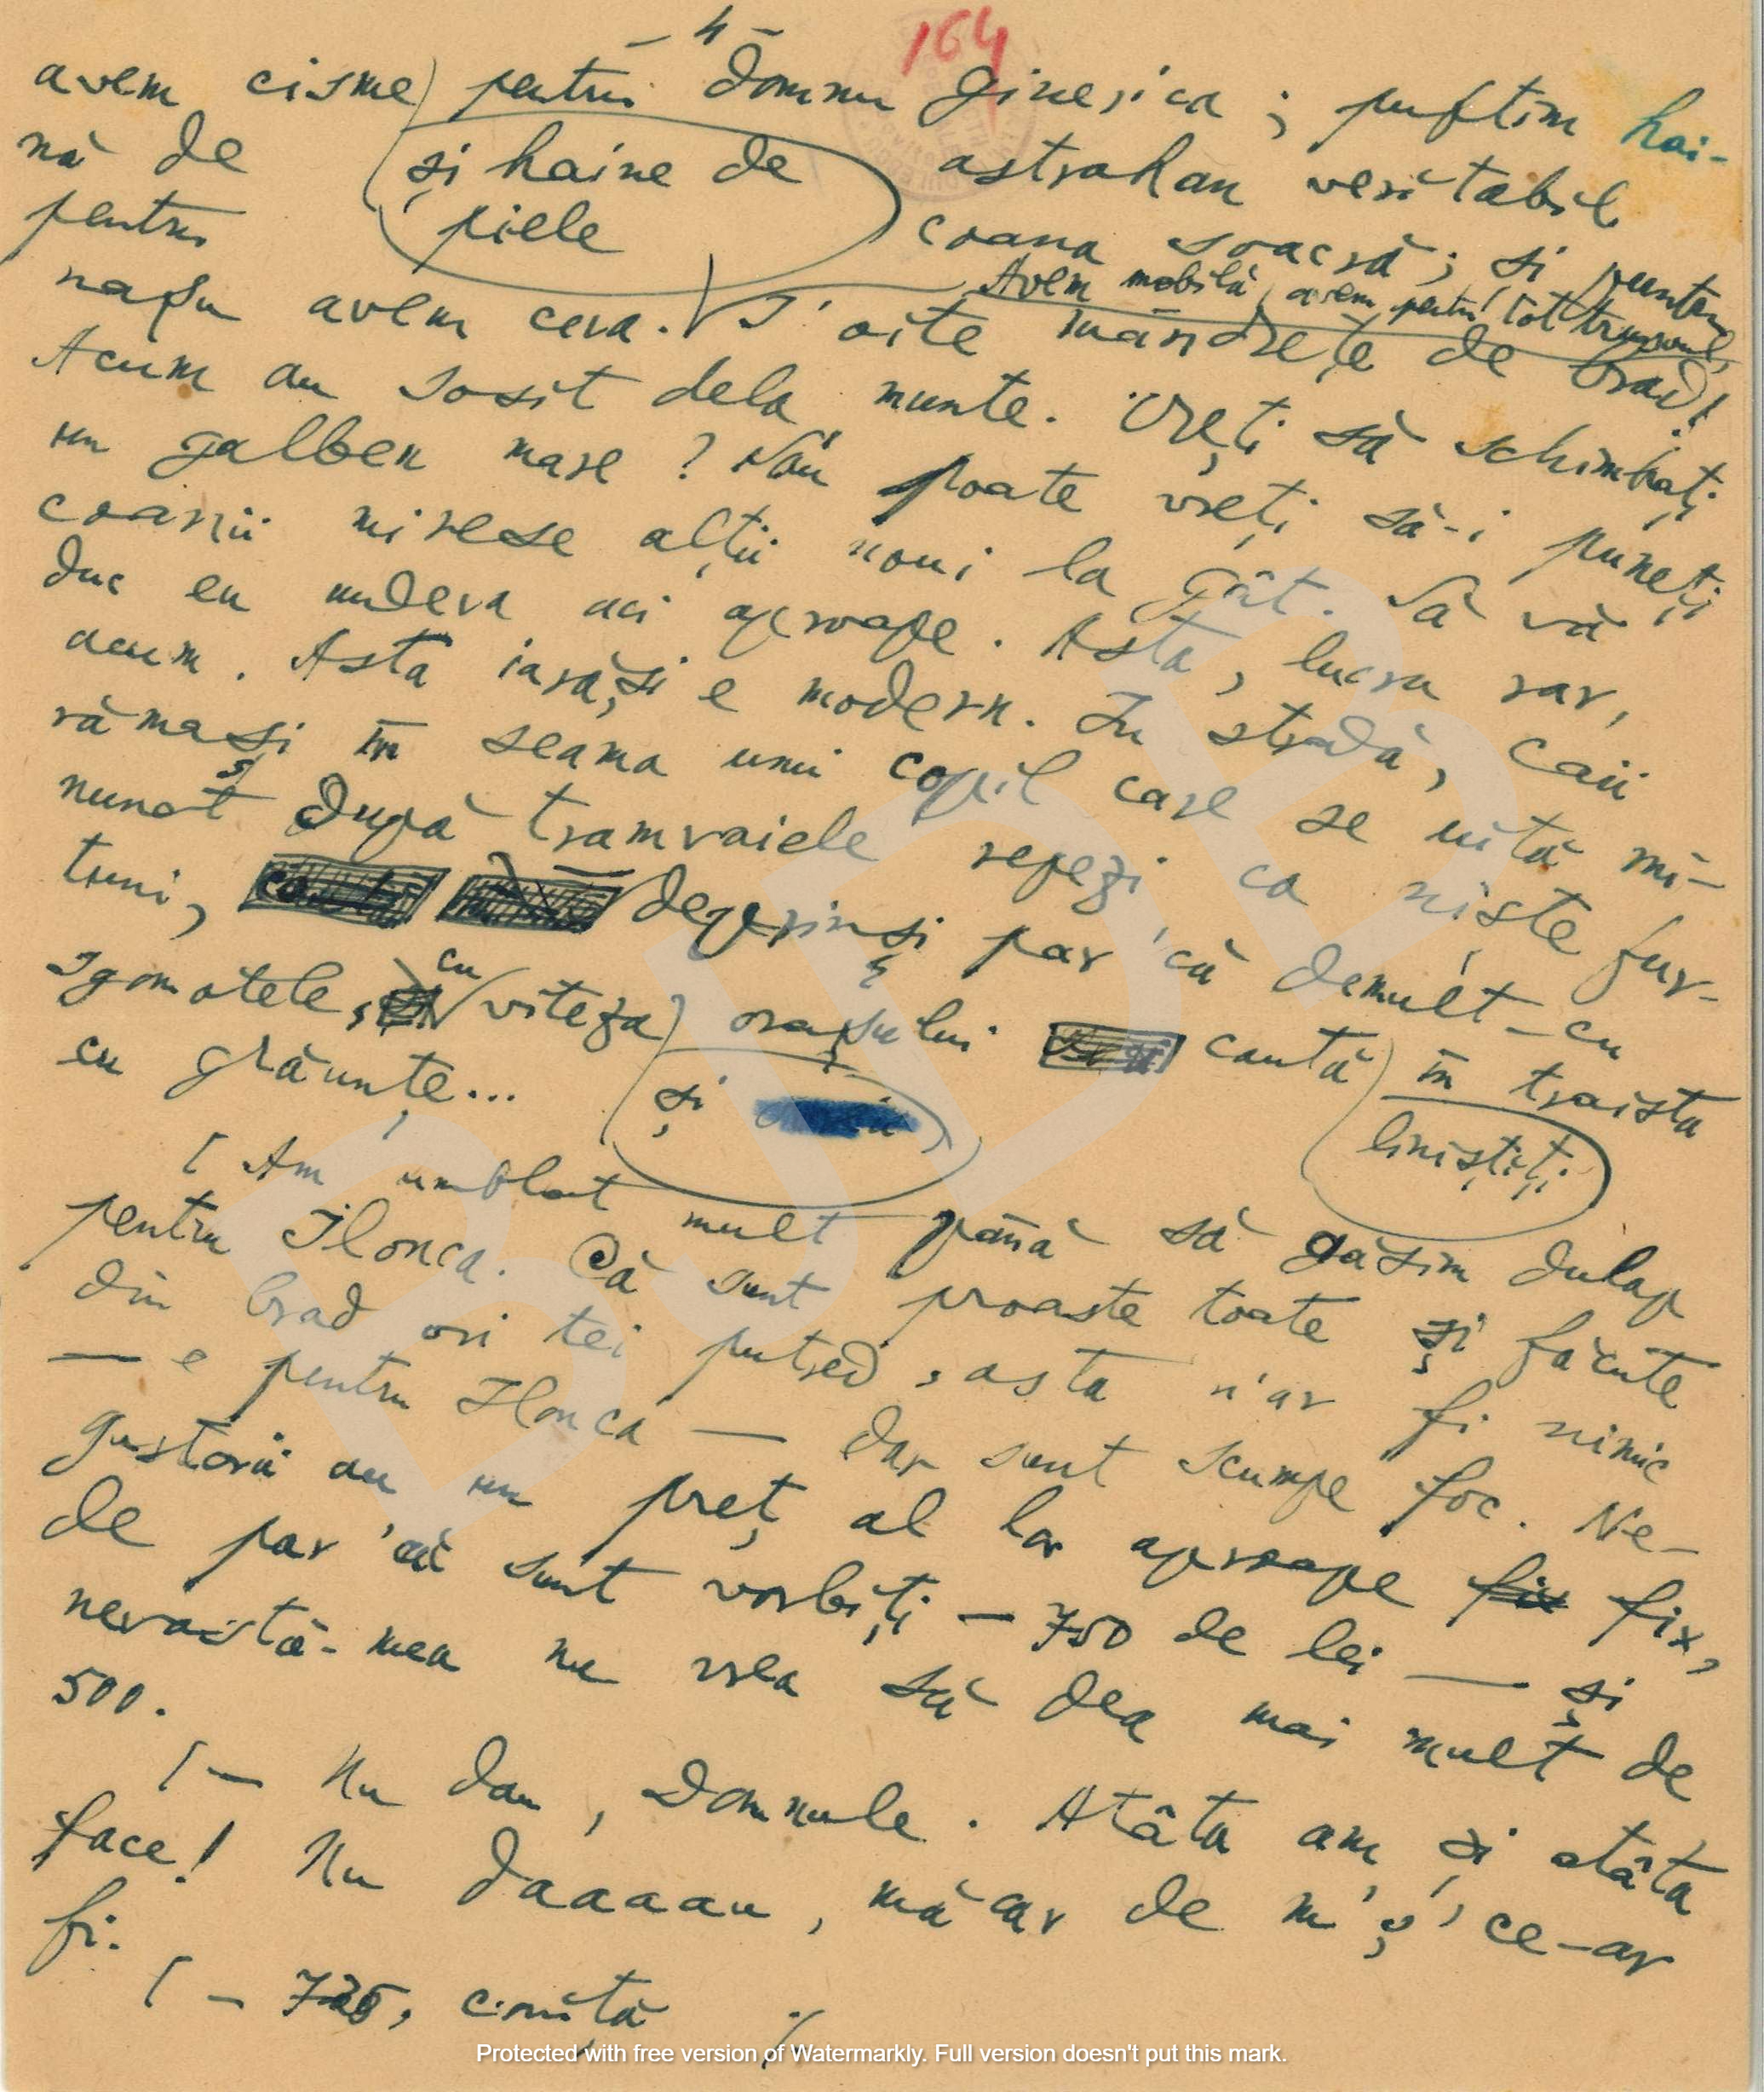 - 4 -
164
avem cisme pentru domnu ginerica ; puftim hai-
nă de astrahan veritabil
și haine de
piele
pentru coana soacră ; și pentru
Avem mobilă, avem pentru tot trusoul,
nașu avem ceva. I'aite mândrețe de brad!
Acum au sosit dela munte. Vreți să schimbați
un galben mare ? Sau poate vreți să-i puneți
coanii mirese alții noui la gât. Să vă
duc eu undeva aci aproape. Asta, lucru rar,
acum. Asta iarăși e modern. In stradă, caii
rămași în seama unui copil care se uită mi-
nunat după tramvaiele repezi ca niște fur-
tuni, deprinși par'că demult - cu
sgomotele, cu viteza orașului caută în traista
și
liniștiți
cu grăunțe...
[ Am umblat mult până să găsim dulap
pentru Ilonca. Că sunt proaste toate și făcute
din brad ori tei putred, asta n'ar fi nimic
— e pentru Ilonca — dar sunt scumpe foc. Ne-
gustorii au un preț al lor aproape fix fix,
de par'că sunt vorbiți — 750 de lei — și
nevastă-mea nu vrea să dea mai mult de
500.
[ — Nu dau, Domnule. Atâta am, și atâta
face! Nu daaaau, măcar de m'ș' ce-ar
fi.
[ — 725, coniță ./.
Protected with free version of Watermarkly. Full version doesn't put this mark.